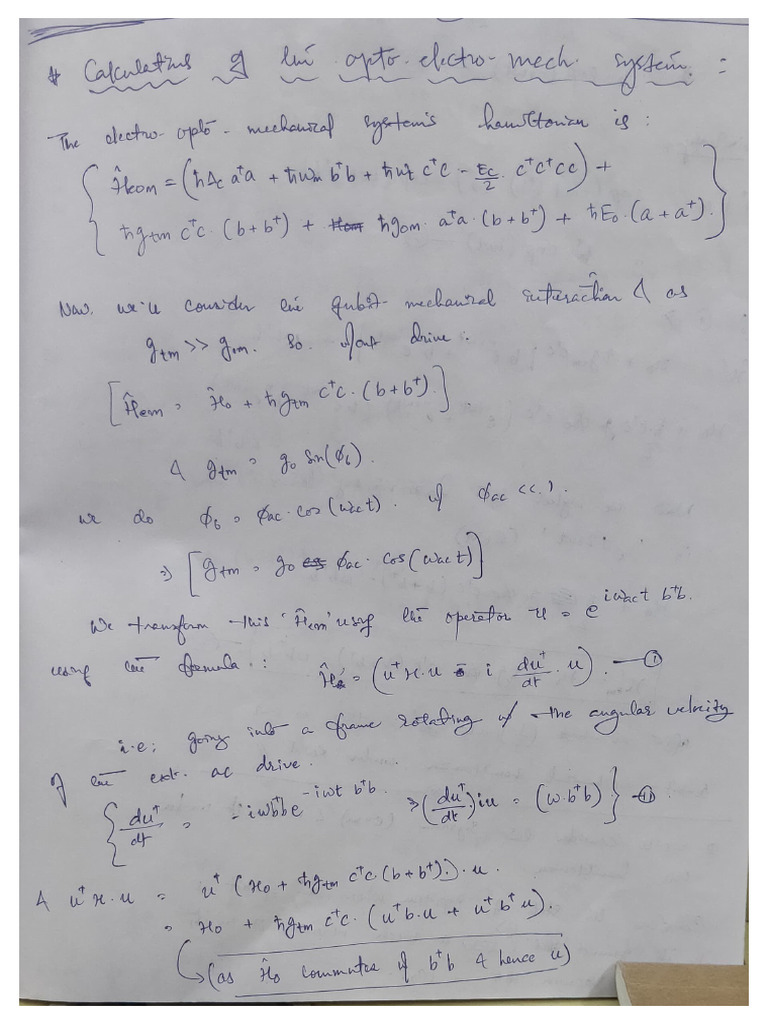 # Calculations of the opto-electro-mech. system :
The electro-opto-mechanical system's hamiltonian is :
{ Ĥ_eom = (ħΔ_c a†a + ħω_m b†b + ħω_t c†c - E_c/2 . c†c†cc) +
ħg_tm c†c . (b + b†) + ħg_om . a†a . (b + b†) + ħE_0 . (a + a†) . }
Now. we'll consider the qubit-mechanical interaction & as
g_tm >> g_om. So. w/out drive :
[ Ĥ_em = Ĥ_0 + ħg_tm c†c . (b + b†) . ] .
& g_tm = g_0 sin(ϕ_b) .
we do ϕ_b = ϕ_ac . cos(ω_ac t) . w/ ϕ_ac << 1 .
⇒ [ g_tm = g_0 ϕ_ac . cos(ω_ac t) ]
We transform this 'Ĥ_em' using the operator u = e^{iω_ac t b†b} .
using the formula . : Ĥ' = (u†H.u i du†/dt . u) . — ①
i.e; going into a frame rotating w/ the angular velocity
of the ext. ac drive .
{ du†/dt = -iωb†b e^{-iωt b†b} . ⇒ (du†/dt) iu = (ω.b†b) } — ⑪ .
& u†H.u = u† (H_0 + ħg_tm c†c (b + b†) . ) . u .
= H_0 + ħg_tm c†c . (u†b.u + u†b†u) .
(as Ĥ_0 commutes w/ b†b & hence u)